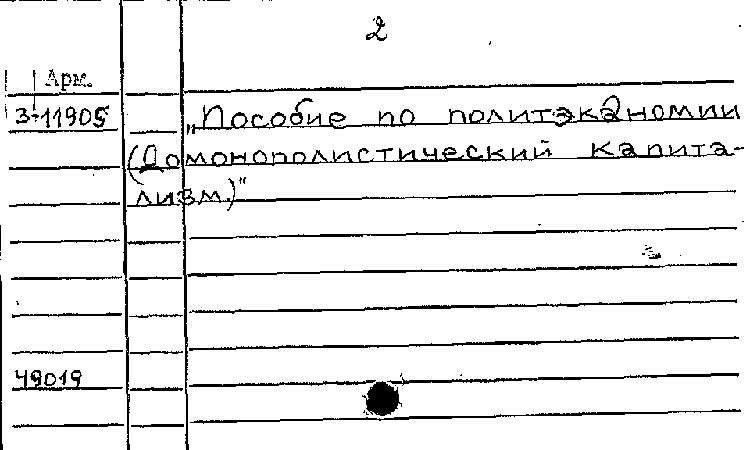 2
Арм.
3-11905
„Пособие по политэкономии
(Домонополистический капита-
лизм.)"
49019